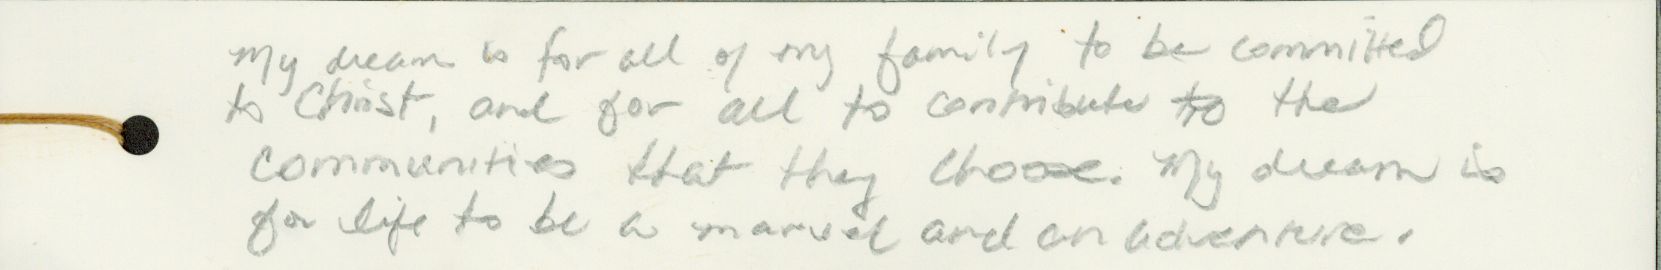 My dream is for all of my family to be committed
to Christ, and for all to contribute to the
communities that they choose. My dream is
for life to be a marvel and an adventure.